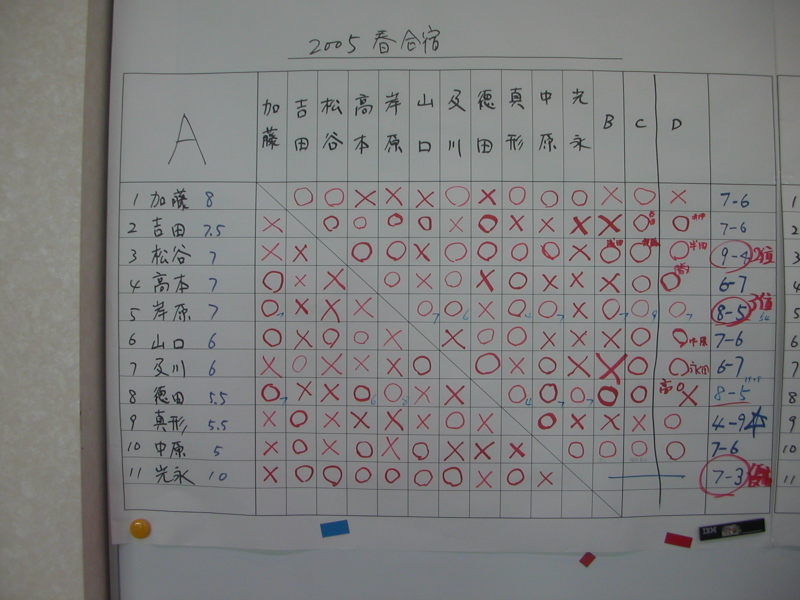 2005 春合宿
A 加藤 吉田 松谷 高本 岸原 山口 及川 徳田 真形 中原 光永 B C D
1 加藤 8 ○ ○ × × × ○ × ○ ○ ○ × ○ × 7-6
2 吉田 7.5 × ○ ○ ○ ○ × ○ × × × × ○ ○ 7-6
3 松谷 7 × × ○ ○ × ○ ○ ○ ○ × ○ ○ ○ 9-4 2位
4 高本 7 ○ × × ○ × ○ × ○ × × × ○ ○ 6-7
5 岸原 7 ○ × × × ○ ○ × ○ × × ○ ○ ○ 8-5 3位
6 山口 6 ○ × ○ ○ × × ○ ○ × × × ○ ○ 7-6
7 及川 6 × ○ × × × ○ ○ × ○ × × ○ ○ 6-7
8 徳田 5.5 ○ × × ○ ○ × × ○ ○ ○ ○ ○ × 8-5
9 真形 5.5 × ○ × × × × ○ × ○ × × × ○ 4-9
10 中原 5 × ○ × ○ × ○ × × × ○ ○ ○ ○ 7-6
11 光永 10 × ○ ○ ○ ○ ○ ○ × ○ × 7-3
IBM
1
2
3
4
5
6
7
8
9
10
11